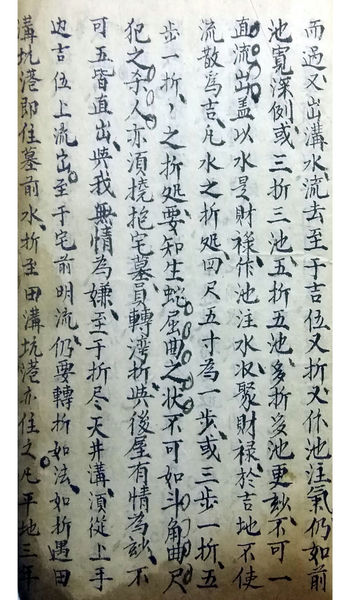 而過又出溝水流去至于吉位又折又作池注氣仍如前
池寬深例或三折三池五折五池多折多池更玅不可一
直流出蓋以水是財祿作池注水收聚財祿於吉地不使
流散為吉凡水之折処四尺五寸為一步或三步一折五
步一折之折処要知生蛇屈曲之狀不可如斗角曲尺
犯之杀人亦須撓抱宅墓員轉湾折與後屋有情為玅不
可五皆直出與我無情為嫌至于折尽天井溝湏從上手
边吉位上流出至于宅前明流仍要轉折如法如折遇田
溝坑港即住墓前水折至田溝坑港亦住之凡平地三年